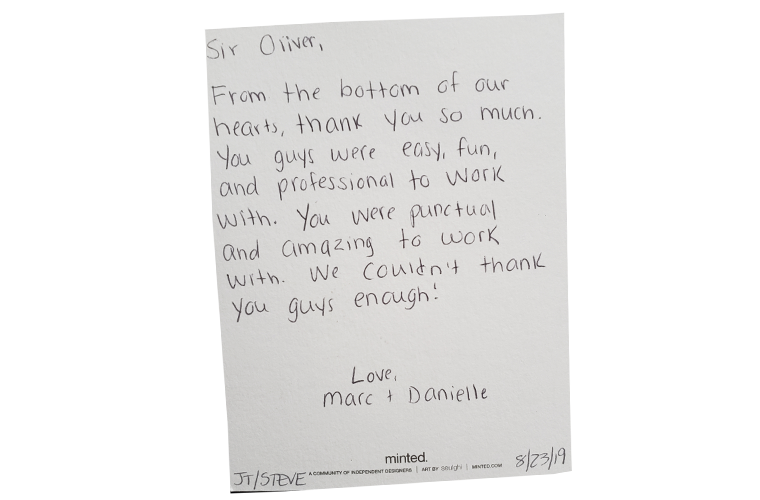 Sir Oliver,
From the bottom of our
hearts, thank you so much.
You guys were easy, fun,
and professional to work
with. You were punctual
and amazing to work
with. We couldn't thank
you guys enough!
Love,
Marc + Danielle
minted.
A COMMUNITY OF INDEPENDENT DESIGNERS | ART BY | MINTED.COM
JT/STEVE
8/23/19